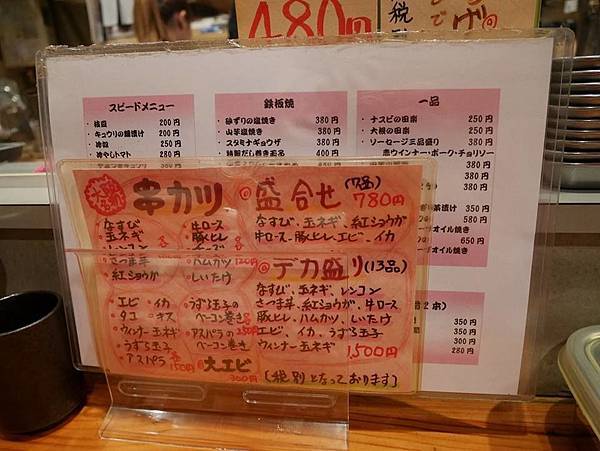 480円
税
スピードメニュー
・枝豆 200円
・キュウリの浅漬け 200円
・冷奴 250円
・冷やしトマト 280円
鉄板焼
・砂ずりの塩焼き 380円
・山芋塩焼き 380円
・スタミナギョウザ 380円
・特製だし巻き玉子 400円
一品
・ナスビの田楽 250円
・大根の田楽 250円
・ソーセージ三品盛り 380円
赤ウインナー・ポーク・チョリソー
380円
380円
350円
580円
オイル焼き
650円
オイル焼き
350円
350円
300円
280円
串カツ
・なすび
・玉ネギ
・レンコン
・さつま芋
・紅ショウガ
・牛ロース
・豚ヒレ
・ハムカツ
・しいたけ
各120円
・エビ ・イカ
・タコ ・キス
・ウィンナー玉ネギ
・うずら玉子
・アスパラ
各150円
・うずら玉子のベーコン巻き
・アスパラのベーコン巻き
・大エビ
300円
◎盛合せ(7品) 780円
なすび、玉ネギ、紅ショウガ
牛ロース、豚ヒレ、エビ、イカ
◎デカ盛り(13品)
なすび、玉ネギ、レンコン
さつま芋、紅ショウガ、牛ロース
豚ヒレ、ハムカツ、しいたけ
エビ、イカ、うずら玉子
ウィンナー玉ネギ 1,500円
[税別となっております]